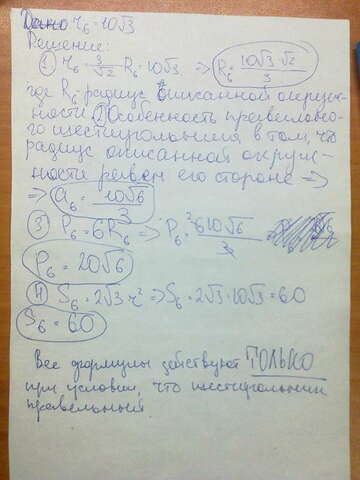 Дано r₆ = 10√3
Решение:
① r₆ = 3/√2 R₆ = 10√3 => R₆ = 10√3·√2/3
где R₆ - радиус описанной окруж-
ности ② Особенность правельно-
го шестиугольника в том, что
радиус описанной окруж-
ности равен его стороне =>
=> a₆ = 10√6/3
③ P₆ = 6R₆ => P₆ = 6·10√6/3
P₆ = 20√6
④ S₆ = 2√3 r² => S₆ = 2√3·10√3 = 60
S₆ = 60
Все формулы действуют ТОЛЬКО
при условии, что шестиугольник
правельный